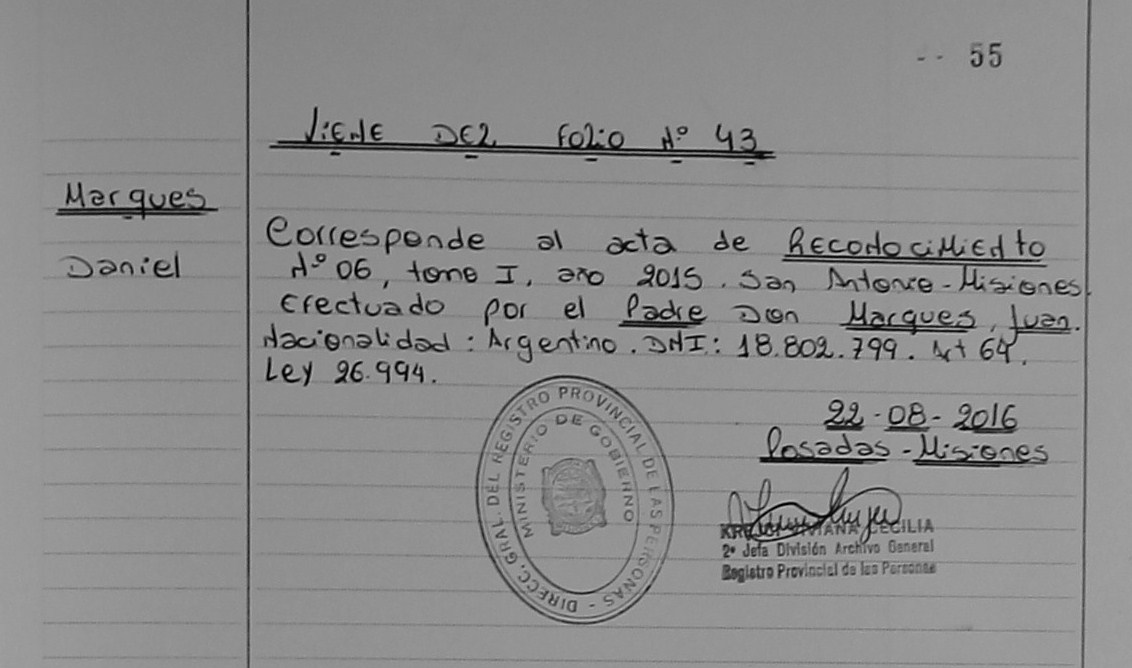 -- 55
Viene DEL Folio Nº 43
Marques
Daniel
Corresponde al acta de Reconocimiento
Nº 06, tomo I, año 2015. San Antonio-Misiones.
Efectuado por el Padre Don Marques, Juan.
Nacionalidad: Argentino. DNI: 18.802.799. Art 64.
Ley 26.994.
22-08-2016
Posadas-Misiones
DIRECC. GRAL. DEL REGISTRO PROVINCIAL DE LAS PERSONAS -
MINISTERIO DE GOBIERNO
CECILIA
2º Jefa División Archivo General
Registro Provincial de las Personas